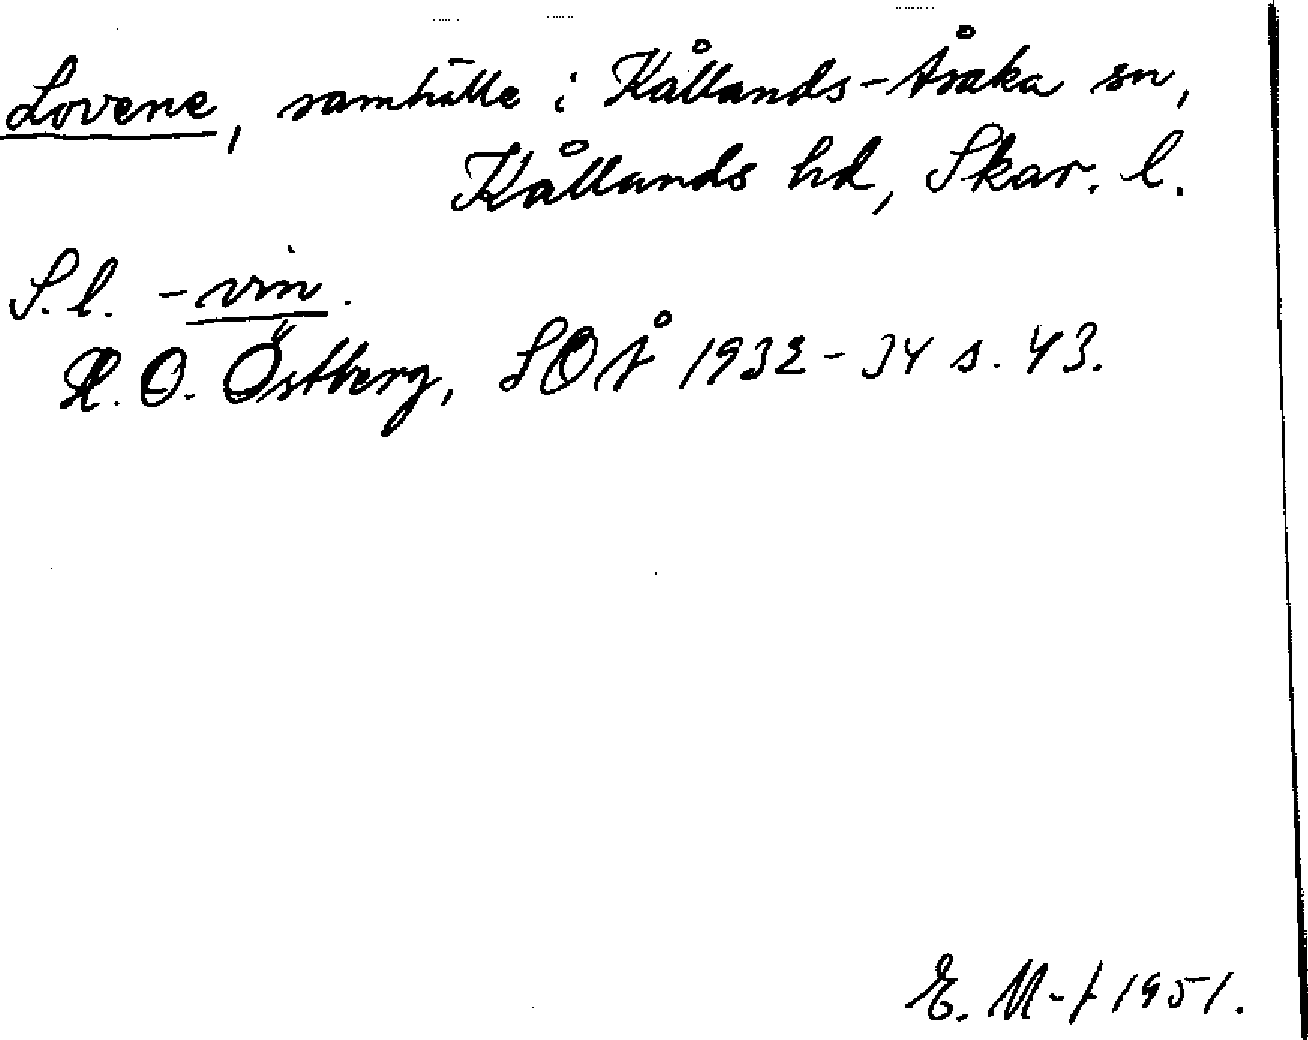 Lovene, samhälle i Kållands-Åsaka sn,
Kållands hd, Skar. l.
S.l. -vin.
H. O. Östberg, SOÅ 1932-34 s. 43.
E. M-f 1951.